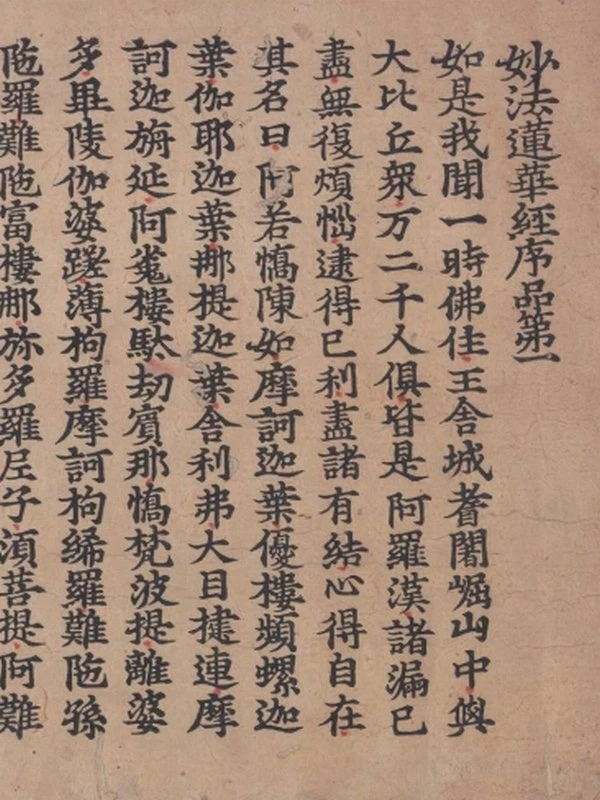 妙法蓮華經序品第一
如是我聞一時佛住王舍城耆闍崛山中與
大比丘衆万二千人俱皆是阿羅漢諸漏已
盡無復煩惱逮得已利盡諸有結心得自在
其名曰阿若憍陳如摩訶迦葉優樓頻螺迦
葉伽耶迦葉那提迦葉舍利弗大目揵連摩
訶迦旃延阿㝹樓馱劫賓那憍梵波提離婆
多畢陵伽婆蹉薄拘羅摩訶拘絺羅難陁孫
陁羅難陁富樓那弥多羅尼子湏菩提阿難